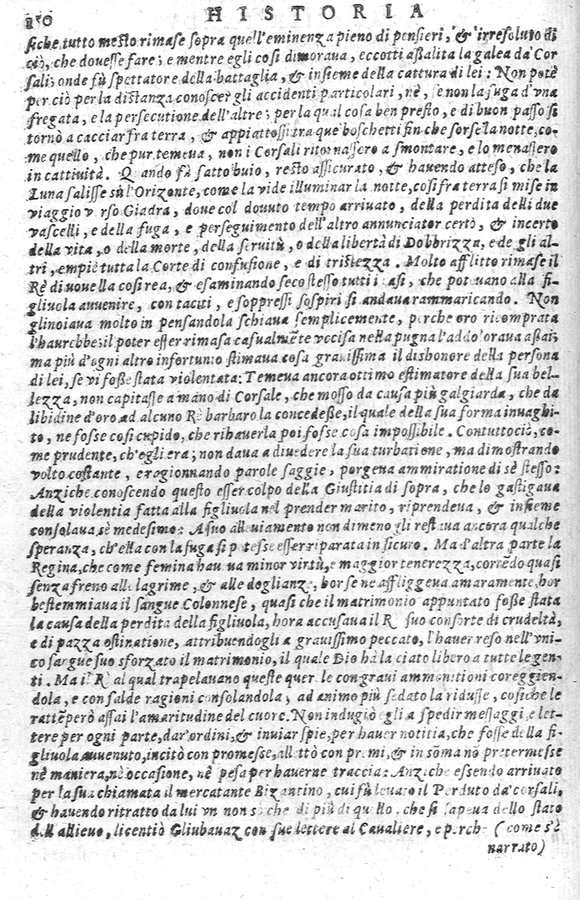 150 HISTORIA
siche tutto mesto rimase sopra quell'eminenza pieno di pensieri, & irresoluto di
ciò, che douesse fare; e mentre egli così dimoraua, eccotti assalita la galea da Cor
sali; onde fù spettatore della battaglia, & insieme della cattura di lei: Non potè
per ciò per la distanza conoscer gli accidenti particolari, nè, se non la fuga d'vna
fregata, e la persecutione dell'altre; per la qual cosa ben presto, e di buon passo si
tornò a cacciar fra terra, & appiattossi tra que' boschetti fin che sorse la notte, co-
me quello, che pur temeua, non i Corsali ritornassero a smontare, e lo menassero
in cattiuità. Quando fù fatto buio, restò assicurato, & hauendo atteso, che la
Luna salisse sù l'Orizonte, come la vide illuminar la notte, così fra terra si mise in
viaggio v rso Giadra, doue col douuto tempo arriuato, della perdita delli due
vascelli, e della fuga, e perseguimento dell'altro annunciator certo, & incerto
della vita, o della morte, della seruitù, o della libertà di Dobbrizza, e de gli al-
tri, empiè tutta la Corte di confusione, e di tristezza. Molto afflitto rimase il
Rè di nouella così rea, & esaminando seco stesso tutti i casi, che poteuano alla fi-
gliuola auuenire, con taciti, e soppressi sospiri si andaua rammaricando. Non
gli noiaua molto in pensandola schiaua semplicemente, perche oro ricomprata
l'haurebbe; il poter esser rimasa casualmẽte vccisa nella pugna l'addoloraua assai;
ma più d'ogni altro infortunio stimaua cosa grauissima il dishonore della persona
di lei, se vi fosse stata violentata: Temeua ancora ottimo estimatore della sua bel-
lezza, non capitasse a mano di Corsale, che mosso da causa più galgiarda, che da
libidine d'oro ad alcuno Rè barbaro la concedesse, il quale della sua forma inuaghi-
to, ne fosse così cupido, che rihauerla poi fosse cosa impossibile. Contuttociò, co-
me prudente, ch'egli era; non daua a diuedere la sua turbatione, ma dimostrando
volto costante, e ragionnando parole saggie, porgeua ammiratione di sè stesso:
Anziche conoscendo questo esser colpo della Giustitia di sopra, che lo gastigaua
della violentia fatta alla figliuola nel prender marito, riprendeua, & insieme
consolaua sè medesimo: A suo alleuiamento non dimeno gli restaua ancora qualche
speranza, ch'ella con la fuga si potesse esser riparata in sicuro. Ma d'altra parte la
Regina, che come femina hau ua minor virtù, e maggior tenerezza, corrẽdo quasi
senza freno alle lagrime, & alle doglianze, hor se ne affliggeua amaramente, hor
bestemmiaua il sangue Colonnese, quasi che il matrimonio appuntato fosse stata
la causa della perdita della figliuola, hora accusaua il R suo consorte di crudeltà,
e di pazza ostinatione, attribuendogli a grauissimo peccato, l'hauer reso nell'vni-
co sangue suo sforzato il matrimonio, il quale Dio hà la ciato libero a tutte le gen-
ti. Ma il R al qual trapelauano queste quer le con graui ammonitioni coreggien-
dola, e con salde ragioni consolandola, ad animo più sedato la ridusse, cosiche le
rattẽperò assai l'amaritudine del cuore. Non indugiò egli a spedir messaggi, e let-
tere per ogni parte, dar'ordini, & inuiar spie, per hauer notitia, che fosse della fi-
gliuola auuenuto, incitò con promesse, allettò con premi, & in sõma nõ pretermesse
nè maniera, nè occasione, nè pesa per hauerne traccia: Anziche essendo arriuato
per la sua chiamata il mercatante Bizantino, cui fù leuato il Perduto da' corsali,
& hauendo ritratto da lui vn non sò che di più di quello, che si sapeua dello stato
dell'allieuo, licentiò Gliubauaz con sue lettere al Caualiere, e perche (come s'è
narrato)